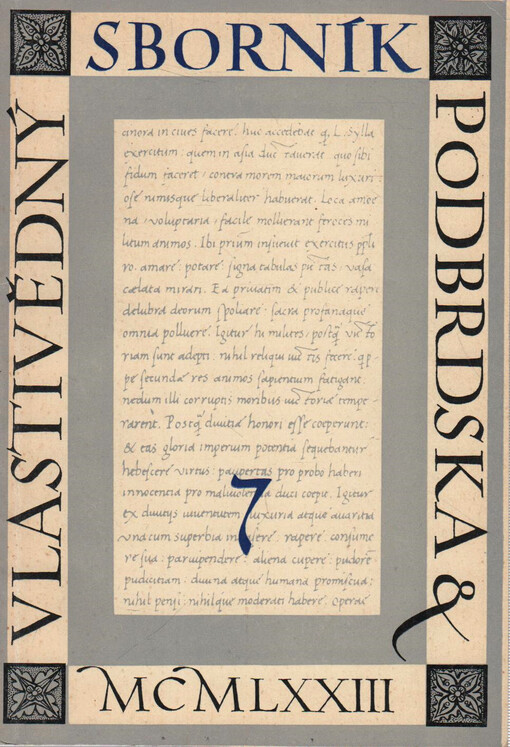 SBORNÍK
VLASTIVĚDNÝ
PODBRDSKA &
cinora in ciues facere: huc accedebat q, L. Sylla
exercitum: quem in asia duc tauerat quo sibi
fidum faceret, contra morem maiorum luxuri
ose nimisque liberaliter habuerat. Loca amoe
na, voluptaria, facile mollierant feroces mi
litum animos. Ibi primum insueuit exercitus ppli
ro. amare: potare: signa tabulas pic tas, vasa
cælata mirari. Ea priuatim & publice rapere
delubra deorum spoliare, sacra profanaque
omnia polluere. Igitur hi milites, postq̃ vic to
riam sunt adepti: nihil reliqui uic tis fecere. q p
pe secundæ res animos sapientium fatigant:
nedum illi corruptis moribus uic toriæ tempe
rarent. Postq̃ diuitiæ honori esse coeperunt:
& eas gloria imperium potentia sequebantur
hebescere virtus: paupertas pro probro haberi
innocentia pro maliuolentia duci coepit. Igitur
ex diuitiis iuuentutem luxuria atque auaritia
vna cum superbia inuasere rapere: consume
re sua: paruipendere: aliena cupere: pudorẽ
pudicitiam: diuina atque humana promiscua:
nihil pensi: nihilque moderati habere. Operae
7
MCMLXXIII